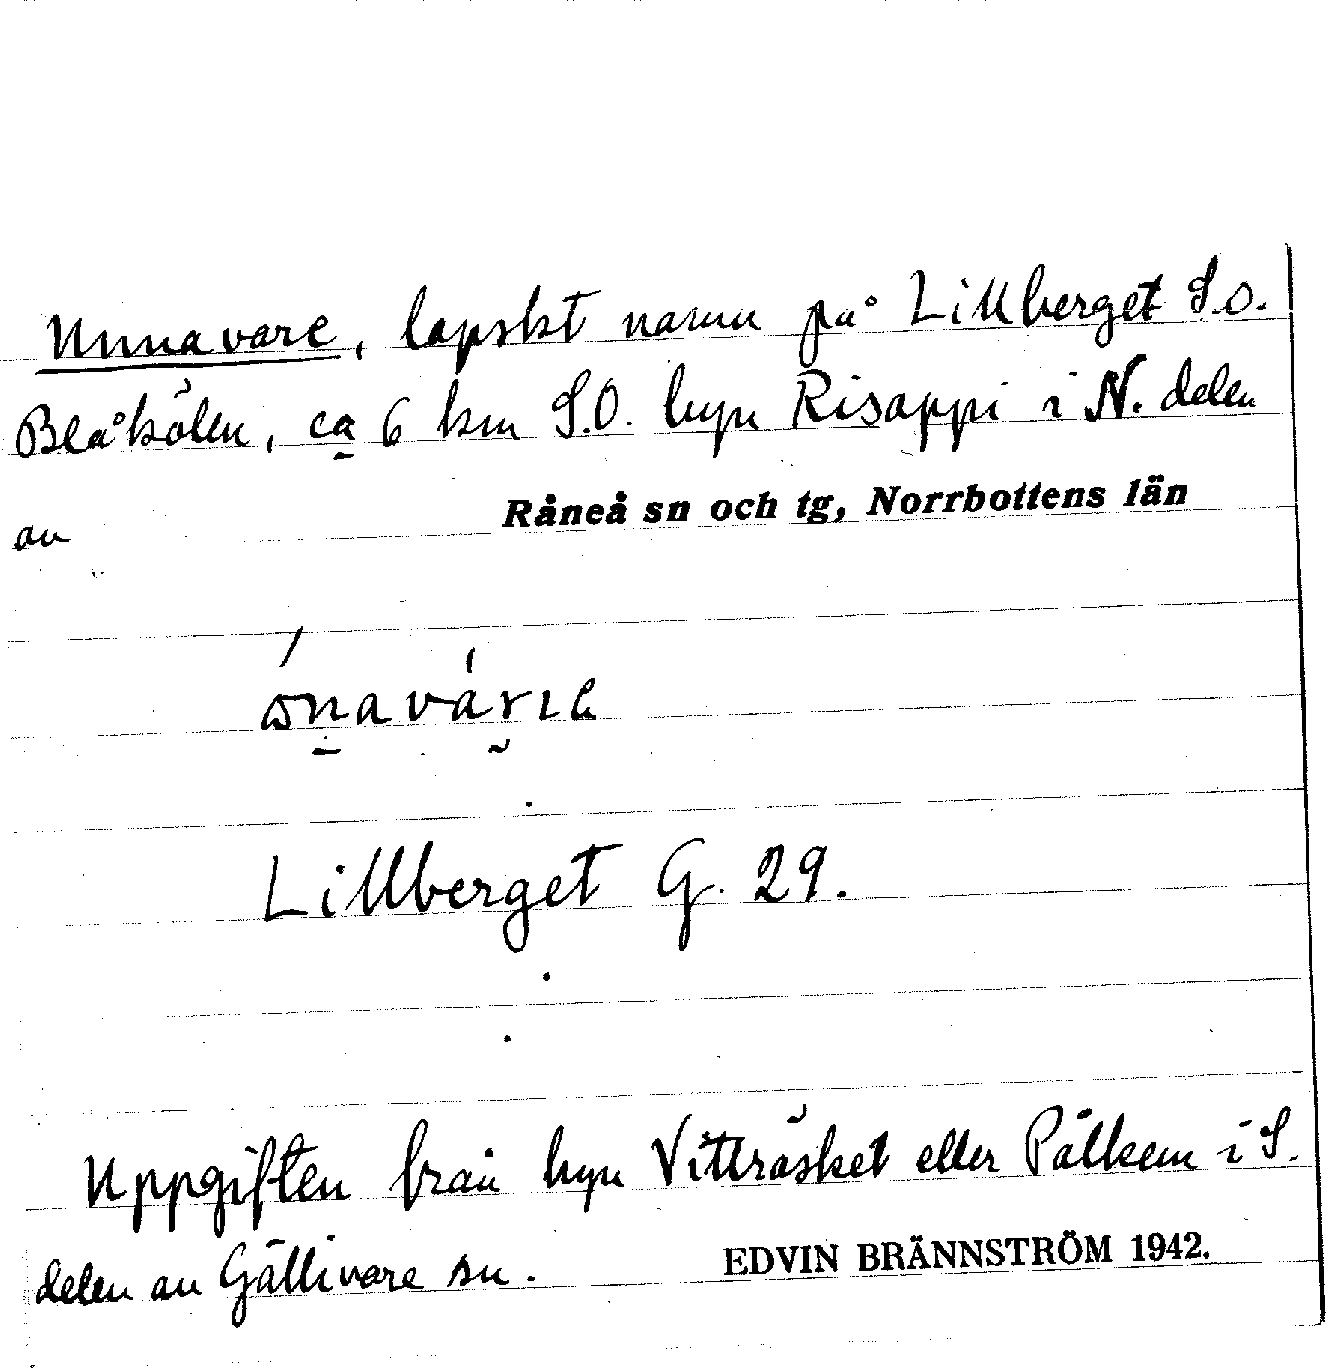 Unnavare, lapskt namn på Lillberget S.o.
Blåkölen, ca 6 km S.O. byn Risappi i N. delen
av Råneå sn och tg, Norrbottens län
Lillberget G. 29.
Uppgiften från byn Vitträsket eller Pålkem i S.
delen av Gällivare sn. EDVIN BRÄNNSTRÖM 1942.